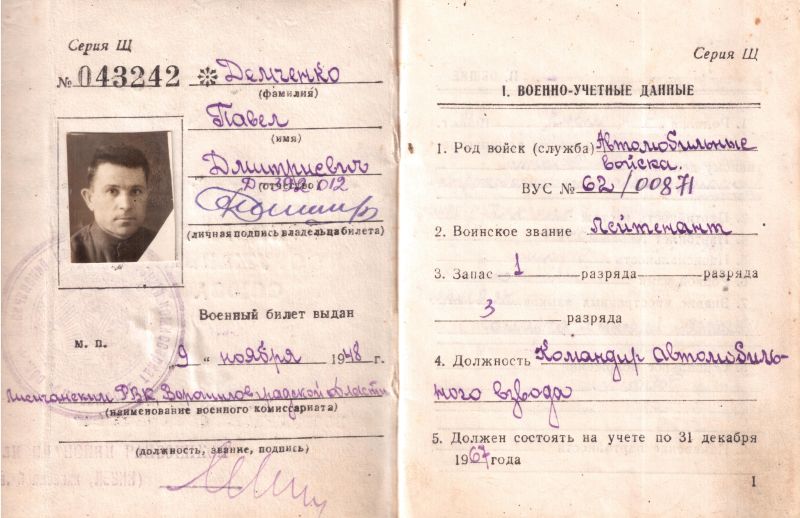 Серия Щ
№ 043242 ※ Демченко
(фамилия)
Павел
(имя)
Дмитриевич
(отчество)
(личная подпись владельца билета)
Военный билет выдан
м. п.
9 „ ноября 1948 г.
Лисичанским РВК Ворошиловградской области
(наименование военного комиссариата)
(должность, звание, подпись)
Серия Щ
I. ВОЕННО-УЧЕТНЫЕ ДАННЫЕ
1. Род войск (служба) Автомобильные
войска.
ВУС № 62/00871
2. Воинское звание Лейтенант
3. Запас 1 разряда разряда
3 разряда
4. Должность Командир автомобиль-
ного взвода
5. Должен состоять на учете по 31 декабря
1967 года
I